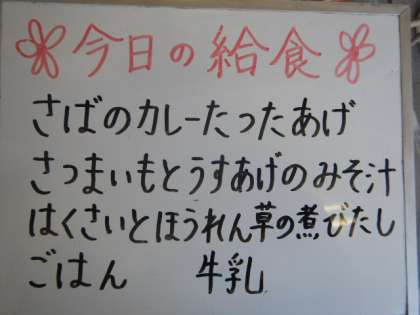 今日の給食
さばのカレーたったあげ
さつまいもとうすあげのみそ汁
はくさいとほうれん草の煮びたし
ごはん 牛乳